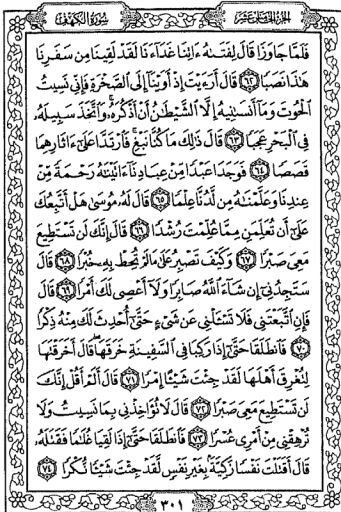 الجزء الخامس عشر
سُورَةُ الكَهْفِ
فَلَمَّا جَاوَزَا قَالَ لِفَتَىٰهُ ءَاتِنَا غَدَآءَنَا لَقَدْ لَقِينَا مِن سَفَرِنَا
هَٰذَا نَصَبًا ﴿٦٢﴾ قَالَ أَرَءَيْتَ إِذْ أَوَيْنَآ إِلَى ٱلصَّخْرَةِ فَإِنِّى نَسِيتُ
ٱلْحُوتَ وَمَآ أَنسَىٰنِيهُ إِلَّا ٱلشَّيْطَٰنُ أَنْ أَذْكُرَهُۥ ۚ وَٱتَّخَذَ سَبِيلَهُۥ
فِى ٱلْبَحْرِ عَجَبًا ﴿٦٣﴾ قَالَ ذَٰلِكَ مَا كُنَّا نَبْغِ ۚ فَٱرْتَدَّا عَلَىٰٓ ءَاثَارِهِمَا
قَصَصًا ﴿٦٤﴾ فَوَجَدَا عَبْدًا مِّنْ عِبَادِنَآ ءَاتَيْنَٰهُ رَحْمَةً مِّنْ
عِندِنَا وَعَلَّمْنَٰهُ مِن لَّدُنَّا عِلْمًا ﴿٦٥﴾ قَالَ لَهُۥ مُوسَىٰ هَلْ أَتَّبِعُكَ
عَلَىٰٓ أَن تُعَلِّمَنِ مِمَّا عُلِّمْتَ رُشْدًا ﴿٦٦﴾ قَالَ إِنَّكَ لَن تَسْتَطِيعَ
مَعِىَ صَبْرًا ﴿٦٧﴾ وَكَيْفَ تَصْبِرُ عَلَىٰ مَا لَمْ تُحِطْ بِهِۦ خُبْرًا ﴿٦٨﴾ قَالَ
سَتَجِدُنِىٓ إِن شَآءَ ٱللَّهُ صَابِرًا وَلَآ أَعْصِى لَكَ أَمْرًا ﴿٦٩﴾ قَالَ
فَإِنِ ٱتَّبَعْتَنِى فَلَا تَسْـَٔلْنِى عَن شَىْءٍ حَتَّىٰٓ أُحْدِثَ لَكَ مِنْهُ ذِكْرًا
﴿٧٠﴾ فَٱنطَلَقَا حَتَّىٰٓ إِذَا رَكِبَا فِى ٱلسَّفِينَةِ خَرَقَهَا ۖ قَالَ أَخَرَقْتَهَا
لِتُغْرِقَ أَهْلَهَا لَقَدْ جِئْتَ شَيْـًٔا إِمْرًا ﴿٧١﴾ قَالَ أَلَمْ أَقُلْ إِنَّكَ
لَن تَسْتَطِيعَ مَعِىَ صَبْرًا ﴿٧٢﴾ قَالَ لَا تُؤَاخِذْنِى بِمَا نَسِيتُ وَلَا
تُرْهِقْنِى مِنْ أَمْرِى عُسْرًا ﴿٧٣﴾ فَٱنطَلَقَا حَتَّىٰٓ إِذَا لَقِيَا غُلَٰمًا فَقَتَلَهُۥ
قَالَ أَقَتَلْتَ نَفْسًا زَكِيَّةًۢ بِغَيْرِ نَفْسٍ لَّقَدْ جِئْتَ شَيْـًٔا نُّكْرًا ﴿٧٤﴾
٣٠١